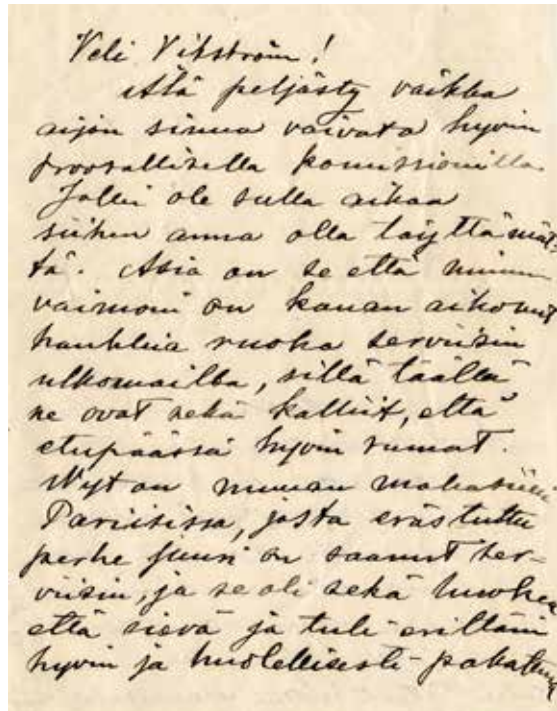 Veli Vikström!
Älä peljästy vaikka
aijon sinua vaivata hyvin
proosallisella komissionilla.
Jollei ole sulla aikaa
siihen anna olla täyttämät-
tä. Asia on se että minun
vaimoni on kauan aikonut
hankkia ruoka serviisin
ulkomailta, sillä täällä
ne ovat sekä kalliit, että
etupäässä hyvin rumat.
Nyt on muuan makasiini
Pariisissa, josta eräs tuttu
perhe juuri on saanut ser-
viisin, ja se oli sekä huokea
että sievä ja tuli erittäin
hyvin ja huolellisesti pakattuna